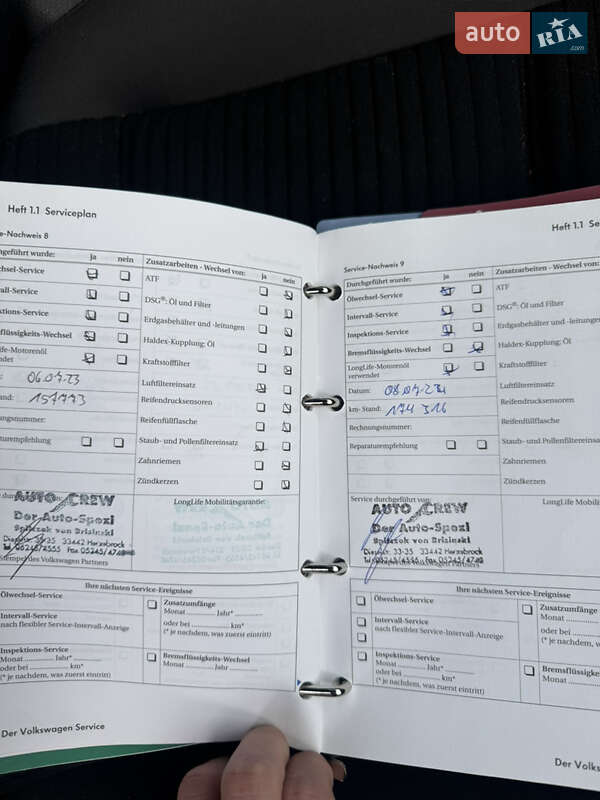 auto RIA .com
Heft 1.1 Serviceplan
e-Nachweis 8
hgeführt wurde: ja nein
chsel-Service
vall-Service
ktions-Service
sflüssigkeits-Wechsel
Life-Motorenöl
ndet
06.07.23
tand: 157773
nungsnummer:
raturempfehlung
Zusatzarbeiten - Wechsel von: ja nein
ATF
DSG®: Öl und Filter
Erdgasbehälter und -leitungen
Haldex-Kupplung: Öl
Kraftstofffilter
Luftfiltereinsatz
Reifendrucksensoren
Reifenfüllflasche
Staub- und Pollenfiltereinsatz
Zahnriemen
Zündkerzen
ce durchgeführt von:
AUTO CREW
Der Auto-Spezi
Dieselstr. 33-35 33442 Herzebrock
Stempel des Volkswagen Partners
LongLife Mobilitätsgarantie:
Ihre nächsten Service-Ereignisse
Ölwechsel-Service
Intervall-Service
nach flexibler Service-Intervall-Anzeige
Inspektions-Service
Monat ........ Jahr* ........
oder bei ............ km*
(* je nachdem, was zuerst eintritt)
Zusatzumfänge
Monat ........ Jahr* ........
oder bei ............ km*
(* je nachdem, was zuerst eintritt)
Bremsflüssigkeits-Wechsel
Monat ........ Jahr ........
Der Volkswagen Service
Heft 1.1 Se
Service-Nachweis 9
Durchgeführt wurde: ja nein
Ölwechsel-Service
Intervall-Service
Inspektions-Service
Bremsflüssigkeits-Wechsel
LongLife-Motorenöl
verwendet
Datum: 08.07.24
km- Stand: 174 316
Rechnungsnummer:
Reparaturempfehlung
Zusatzarbeiten - Wechsel von:
ATF
DSG®: Öl und Filter
Erdgasbehälter und -leitungen
Haldex-Kupplung: Öl
Kraftstofffilter
Luftfiltereinsatz
Reifendrucksensoren
Reifenfüllflasche
Staub- und Pollenfiltereinsatz
Zahnriemen
Zündkerzen
Service durchgeführt von:
AUTO CREW
Der Auto-Spezi
Dieselstr. 33-35 33442 Herzebrock
des Volkswagen Partners
LongLife Mobil
Ihre nächsten Service-Ereignisse
Ölwechsel-Service
Intervall-Service
nach flexibler Service-Intervall-Anzeige
Inspektions-Service
Monat ........ Jahr* ........
oder bei ............ km*
(* je nachdem, was zuerst eintritt)
Zusatzumfänge
Monat ........
oder bei ........
(* je nachdem, w
Bremsflüssigke
Monat ........
Der Volks